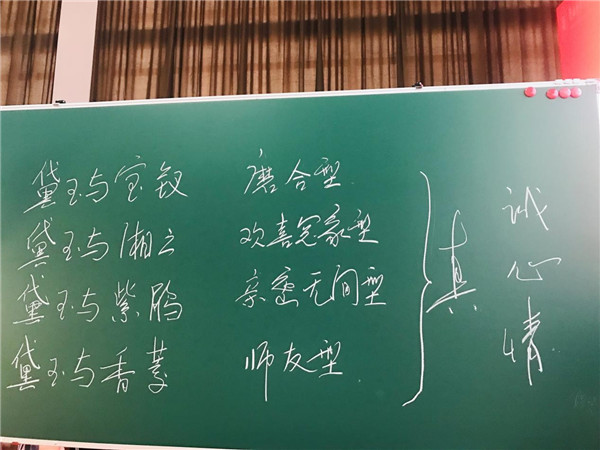 黛玉与宝钗 磨合型
黛玉与湘云 欢喜冤家型
黛玉与紫鹃 亲密无间型
黛玉与香菱 师友型
真
诚
心
情